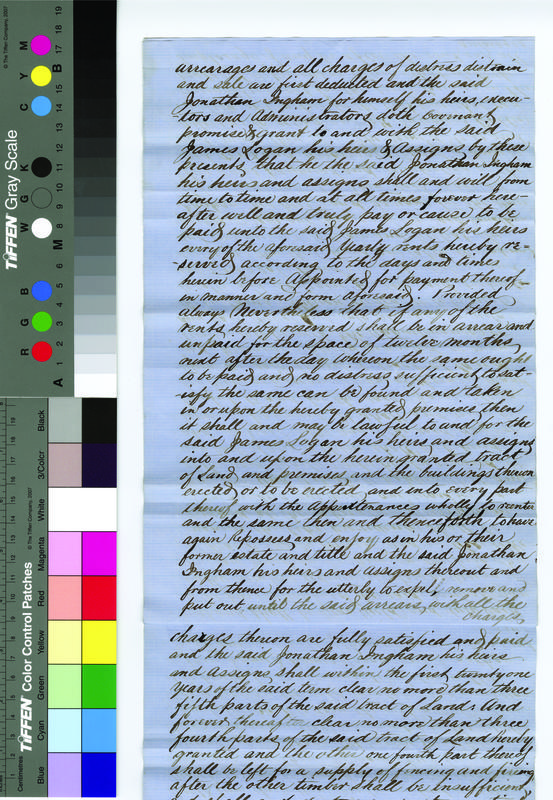 arrearages and all charges of distress distrain
and sale are first deducted and the said
Jonathan Ingham for himself his heirs, execu-
-tors and Administrators doth Covenant
promise & grant to and with the said
James Logan his heirs & Assigns by these
presents that he the said Jonathan Ingham
his heirs and assigns shall and will from
time to time and at all times forever here-
after well and truly pay or cause to be
paid unto the said James Logan his heirs
every of the aforesaid Yearly rents hereby re-
-served according to the days and times
herein before appointed for payment thereof
in manner and form aforesaid. Provided
always Nevertheless that if any of the
rents hereby reserved shall be in arrear and
unpaid for the space of twelve months
next after the day whereon the same ought
to be paid and no distress sufficient to sat-
-isfy the same can be found and taken
in or upon the hereby granted premises then
it shall and may be lawful to and for the
said James Logan his heirs and assigns
into and upon the herein granted tract
of Land and premises and the buildings thereon
erected or to be erected and into every part
thereof with the Appurtenances wholly to reenter
and the same then and thenceforth to have
again Repossess and enjoy as in his or their
former estate and title and the said Jonathan
Ingham his heirs and Assigns thereout and
from thence for the utterly to expel, remove and
put out until the said arrears, with all the
Charges,
charges thereon are fully satisfied and paid
and the said Jonathan Ingham his heirs
and Assigns shall within the first twenty one
Years of the said term clear no more than three
fifth parts of the said tract of Land. And
forever thereafter clear no more than three
fourth parts of the said tract of Land hereby
granted and the other one fourth part thereof
shall be left for a supply of fencing and firing
after the other timber shall be insufficient
TIFFEN Gray Scale
© The Tiffen Company, 2007
R G B W G K C Y M
A 1 2 3 4 5 6 M 8 9 10 11 12 13 14 15 B 17 18 19
TIFFEN Color Control Patches
© The Tiffen Company, 2007
Centimetres
Blue
Cyan
Green
Yellow
Red
Magenta
White
3/Color
Black